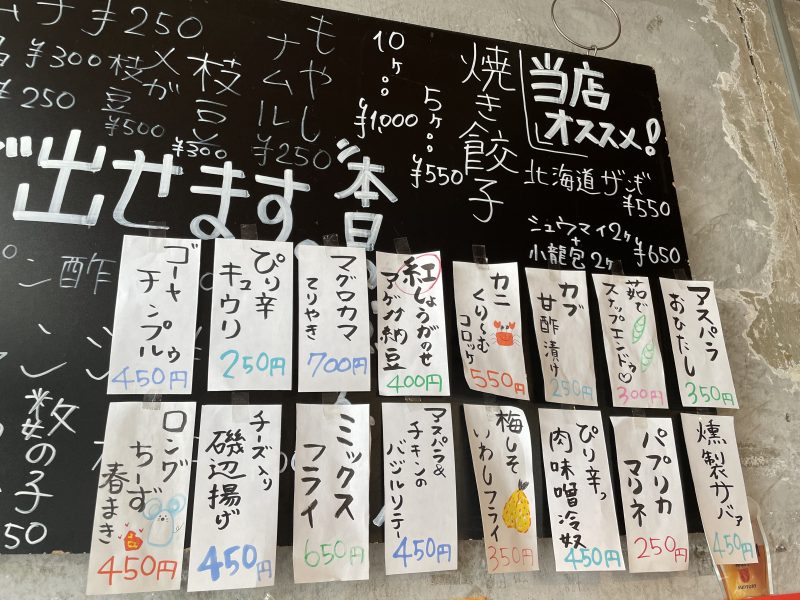 当店
オススメ!
北海道ザンギ
¥550
シュウマイ2ヶ
+
小龍包2ヶ
¥650
焼き餃子
5ヶ…
¥550
10
ヶ…
¥1,000
もやし
ナムル
¥250
枝豆
¥300
メガ
枝豆
¥500
¥300
¥250
¥250
本日
出せます。
ポン酢
数の子
50
アスパラ
おひたし
350円
茹で
スナップエンドウ♡
300円
カブ
甘酢漬け
250円
カニ
くり〜む
コロッケ
550円
紅しょうがのせ
アゲ納豆
400円
マグロカマ
てりやき
700円
ぴり辛
キュウリ
250円
ゴーヤ
チンプルゥ
450円
燻製サバァ
450円
パプリカ
マリネ
250円
ぴり辛っ
肉味噌冷奴
450円
梅しそ
いわしフライ
350円
アスパラ&
チキンの
バジルソテー
450円
ミックス
フライ
650円
チーズ入り
磯辺揚げ
450円
ロング
ちーず
春まき
450円